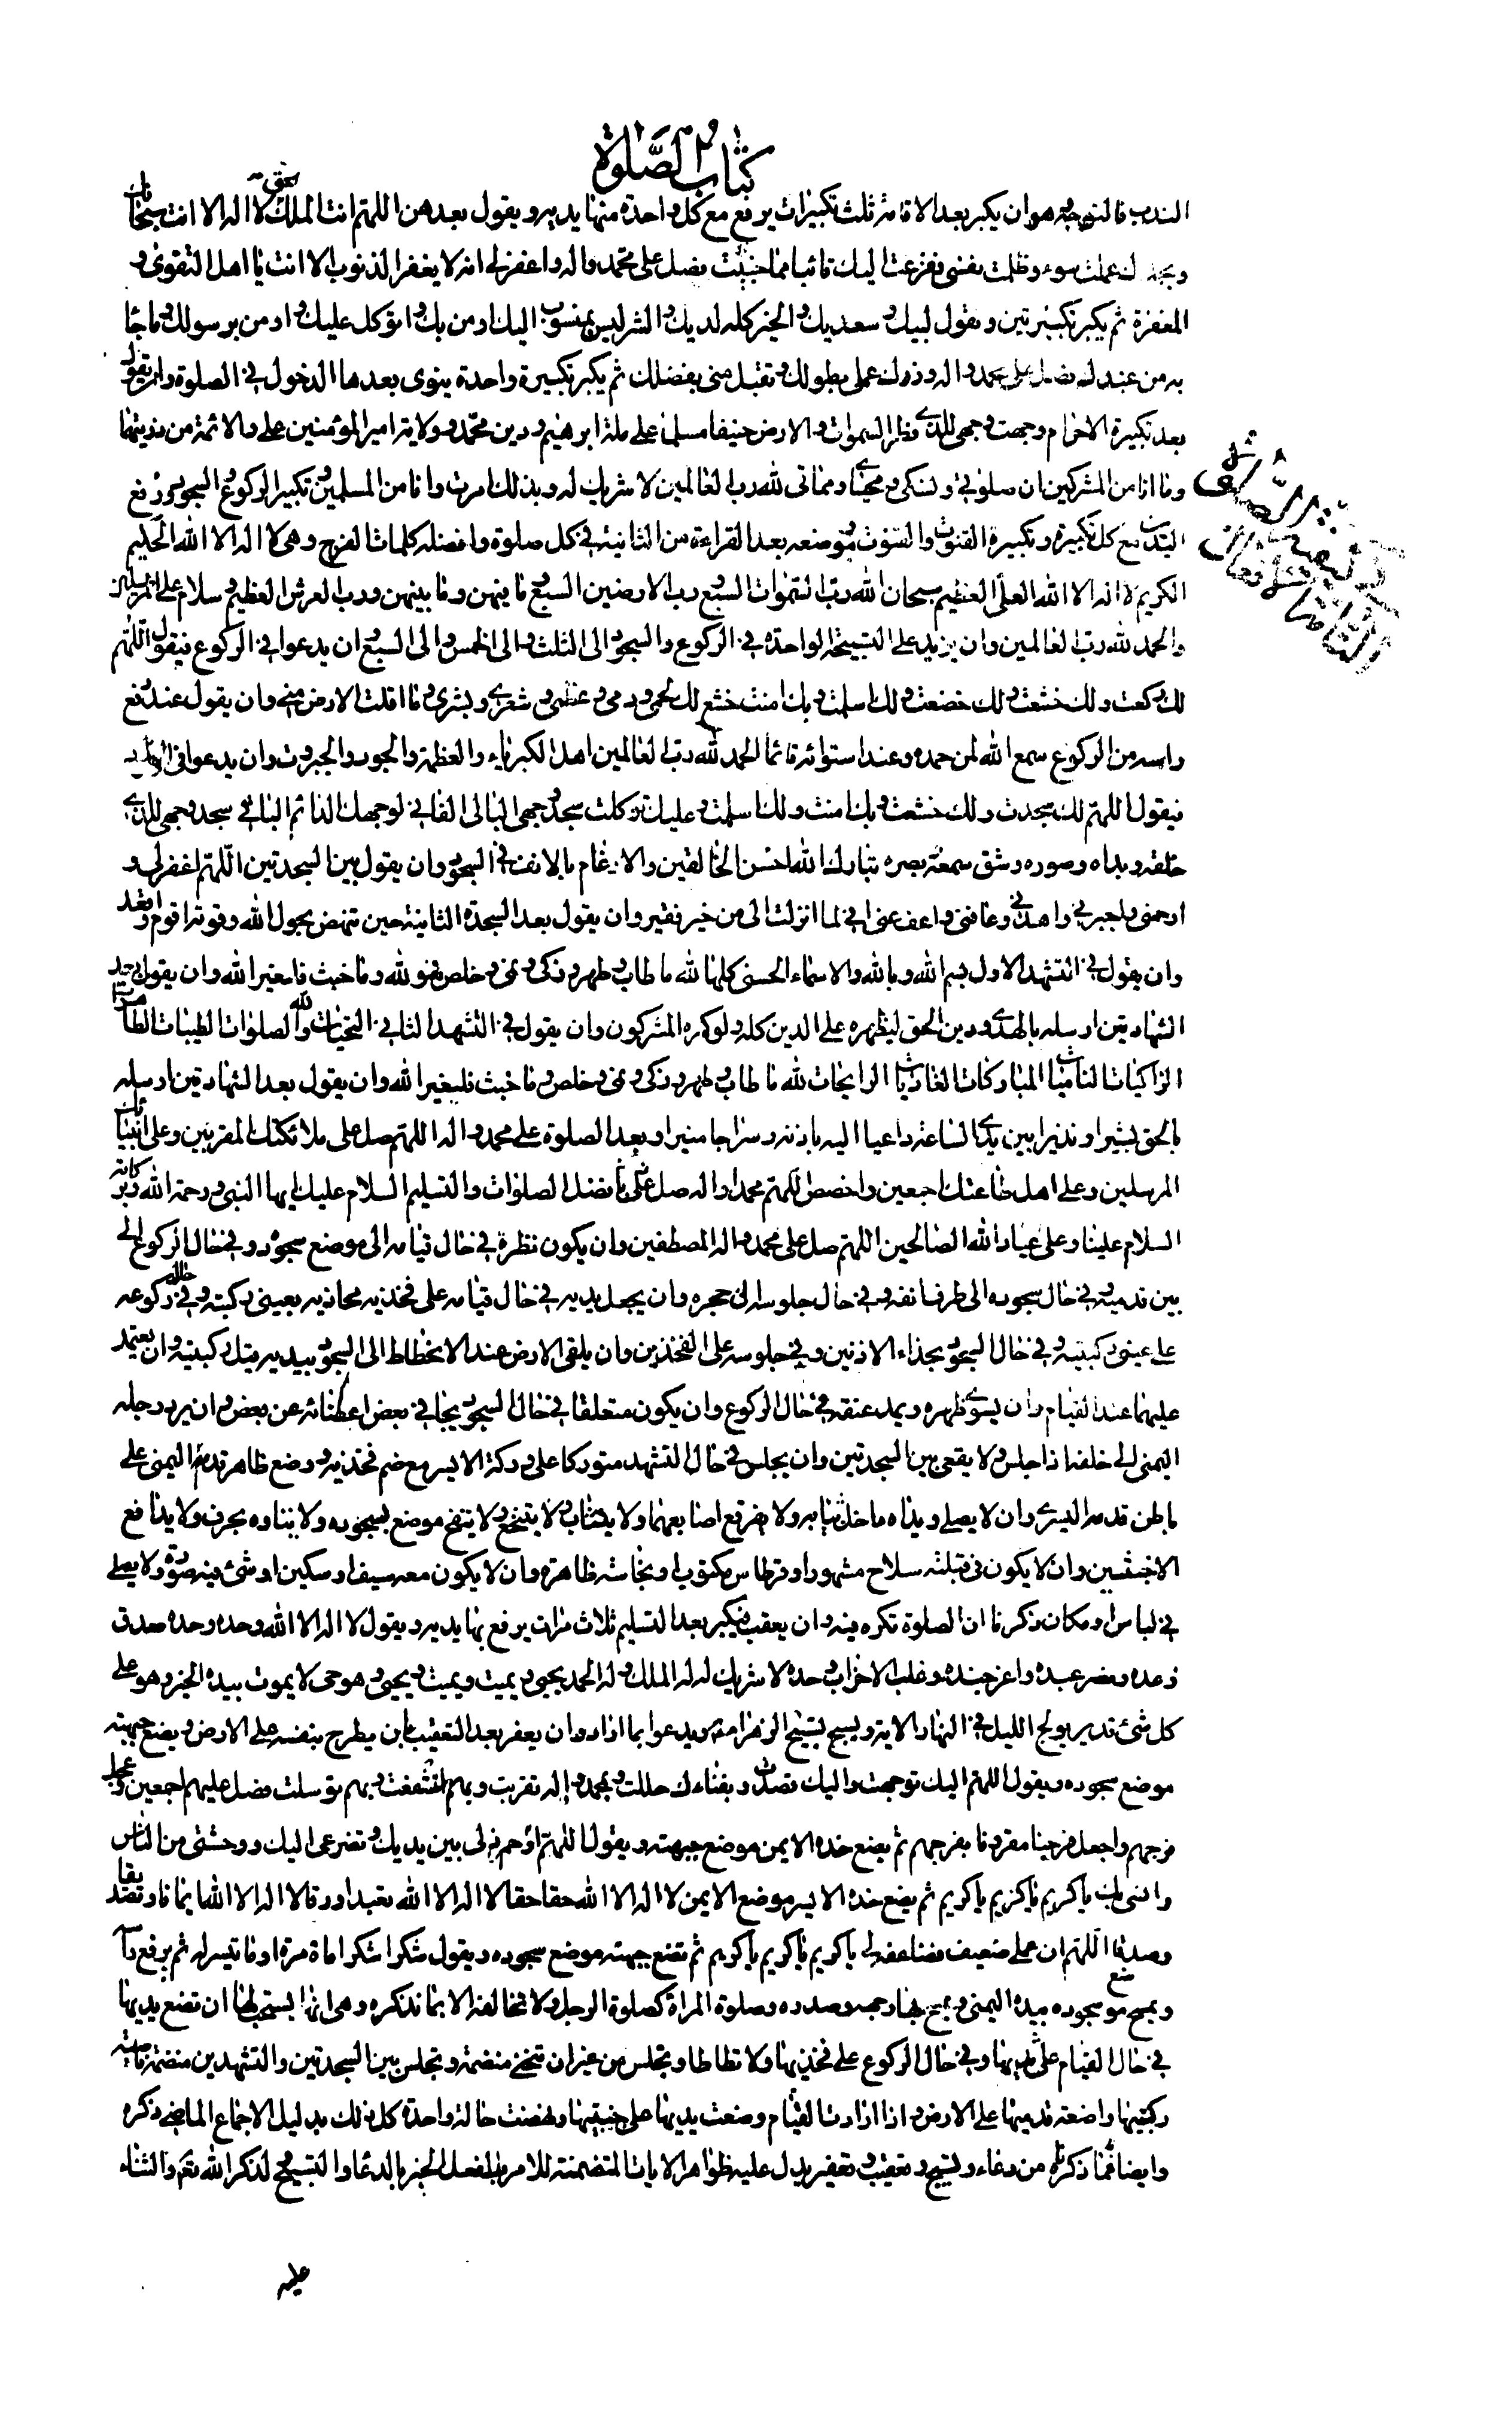 كتاب الصلوة
الندب فالتوجه هو ان يكبر بعد الاقامة ثلث تكبيرات يرفع مع كل واحدة منها يديه ويقول بعدهن اللهم انت الملك الحق لا اله الا انت سبحانك
وبحمدك عملت سوء وظلمت نفسى ففزعت اليك تائبا مما جنيت فصل على محمد واله واغفر لى انه لا يغفر الذنوب الا انت يا اهل التقوى و
المغفرة ثم يكبر تكبيرتين ويقول لبيك وسعديك والخير كله لديك والشر ليس بمنسوب اليك اومن بك واتوكل عليك واومن برسولك وما جاء
به من عندك فصل على محمد واله وزك عملى بطولك وتقبل منى بفضلك ثم يكبر تكبيرة واحدة ينوى بعدها الدخول فى الصلوة وان يقول
بعد تكبيرة الاحرام وجهت وجهى للذى فطر السموات والارض حنيفا مسلما على ملة ابرهيم ودين محمد وولاية امير المؤمنين على والائمة من ذريتهما
وما انا من المشركين ان صلوتى ونسكى ومحياى ومماتى لله رب العالمين لا شريك له وبذلك امرت وانا من المسلمين وتكبير الركوع والسجود ورفع
اليدين مع كل تكبيرة وتكبيرة القنوت والقنوت وموضعه بعد القراءة من الثانية فى كل صلوة وافضله كلمات الفرج وهى لا اله الا الله الحليم
الكريم لا اله الا الله العلى العظيم سبحان الله رب السموات السبع رب الارضين السبع وما فيهن وما بينهن ورب العرش العظيم وسلام على المرسلين
والحمد لله رب العالمين وان يزيد على التسبيحة الواحدة فى الركوع والسجود الى الثلث والى الخمس والى السبع وان يدعوا فى الركوع فيقول اللهم
لك ركعت ولك خشعت ولك خضعت ولك اسلمت وبك امنت خشع لك لحمى ودمى وعظمى وشعرى وبشرى وما اقلت الارض منى وان يقول عند رفع
راسه من الركوع سمع الله لمن حمده وعند استوائه قائما الحمد لله رب العالمين اهل الكبرياء والعظمة والجود والجبروت وان يدعوا فى
فيقول اللهم لك سجدت ولك خشعت وبك امنت ولك اسلمت وعليك توكلت سجد وجهى البالى الفانى لوجهك الدائم الباقى سجد وجهى للذى
خلقه وبداه وصوره وشق سمعه وبصره تبارك الله احسن الخالقين والارغام بالانف فى السجود وان يقول بين السجدتين اللهم اغفر لى و
ارحمنى واجبرنى واهدنى وعافنى واعف عنى انى لما انزلت الى من خير فقير وان يقول بعد السجدة الثانية حين تنهض بحول الله وقوته اقوم واقعد
وان يقول فى التشهد الاول بسم الله وبالله والاسماء الحسنى كلها لله ما طاب وطهر وزكى ونمى وخلص فهو لله وما خبث فلغير الله وان يقول بعد
الشهادتين ارسله بالهدى ودين الحق ليظهره على الدين كله ولو كره المشركون وان يقول فى التشهد الثانى التحيات لله والصلوات الطيبات الطاهرات
الزاكيات الناميات المباركات الغاديات الرايحات لله ما طاب وطهر وزكى ونمى وخلص وما خبث فلغير الله وان يقول بعد الشهادتين ارسله
بالحق بشيرا ونذيرا بين يدى الساعة وداعيا اليه باذنه وسراجا منيرا وبعد الصلوة على محمد واله اللهم صل على ملائكتك المقربين وعلى انبيائك
المرسلين وعلى اهل طاعتك اجمعين واخصص اللهم محمدا واله صل على بافضل الصلوات والتسليم السلام عليك ايها النبى ورحمة الله وبركاته
السلام علينا وعلى عباد الله الصالحين اللهم صل على محمد واله المصطفين وان يكون نظره فى حال قيامه الى موضع سجوده وفى حال الركوع الى
بين قدميه وفى حال سجوده الى طرف انفه وفى حال جلوسه الى حجره وان يجعل يديه فى حال قيامه على فخذيه محاذيه بعينى ركبتيه وفى حال ركوعه
على عينى ركبتيه وفى حال السجود بحذاء الاذنين وفى جلوسه على الفخذين وان يلقى الارض عند الانحطاط الى السجود بيديه قبل ركبتيه وان يعتمد
عليهما عند القيام وان يسوى ظهره ويمد عنقه فى حال الركوع وان يكون متعلقا فى حال السجود يجافى بعض اعضائه عن بعض وان يرد رجله
اليمنى الى خلفه اذا جلس ولا يقعى بين السجدتين وان يجلس فى حال التشهد متوركا على وركه الايسر مع ضم فخذيه ووضع ظاهر قدمه اليمنى على
باطن قدمه اليسرى وان لا يصلى ويداه داخل ثيابه ولا يفرقع اصابعهما ولا يتثاب ولا يتنخع ولا ينفخ موضع سجوده ولا يتاوه بحرف ولا يدافع
الاخبثين وان لا يكون فى قبلته سلاح مشهور او قرطاس مكتوب او نجاسة ظاهرة وان لا يكون معه سيف او سكين او شئ فيه صورة ولا يصلى
فى لباس او مكان ذكرنا ان الصلوة تكره فيه وان يعقب فيكبر بعد التسليم ثلاث مرات يرفع بها يديه ويقول لا اله الا الله وحده وحده صدق
وعده ونصر عبده واعز جنده وغلب الاحزاب وحده لا شريك له له الملك وله الحمد يحيى ويميت ويميت ويحيى وهو حى لا يموت بيده الخير وهو على
كل شئ قدير يولج الليل فى النهار الاية ويسبح تسبيح الزهراء ويدعوا بما اراد وان يعفر بعد التعقيب بان يطرح بنفسه على الارض ويضع جبهته
موضع سجوده ويقول اللهم اليك توجهت واليك قصدت وبفنائك حللت وبمحمد واله تقربت وبهم استشفعت وبهم توسلت فصل عليهم اجمعين وعجل
فرجهم واجعل فرجنا مقرونا بفرجهم ثم يضع خده الايمن موضع جبهته ويقول اللهم ارحم ذلى بين يديك وتضرعى اليك ووحشتى من الناس
وانسى بك يا كريم يا كريم يا كريم ثم يضع خده الايسر موضع الايمن لا اله الا الله حقا حقا لا اله الا الله تعبدا ورقا لا اله الا الله ايمانا وتصديقا
وصدقا اللهم ان عملى ضعيف فضاعفه لى يا كريم يا كريم يا كريم ثم تضع جبهته موضع سجوده ويقول شكرا شكرا مأة مرة او ما تيسر له ثم يرفع راسه
ويمسح موضع سجوده بيده اليمنى ويمسح بها وجهه وصدره وصلوة المراة كصلوة الرجل ولا تخالفه الا بما نذكره وهى انه يستحب لها ان تضع يديها
فى حال القيام على ثدييها وفى حال الركوع على فخذيها ولا تطاطا وتجلس من غير ان تنحنى منضمة وتجلس بين السجدتين والتشهدين منضمة ناصبة
ركبتيها واضعة قدميها على الارض واذا ارادت القيام وضعت يديها على جنبيها ونهضت حالة واحدة كل ذلك بدليل الاجماع الماضى ذكره
وايضا فما ذكرناه من دعاء وتسبيح وتعقيب وتعفير يدل عليه ظواهر الايات المتضمنة للامر بفعل الخير بالدعاء والتسبيح لذكر الله تعم والثناء
عليه